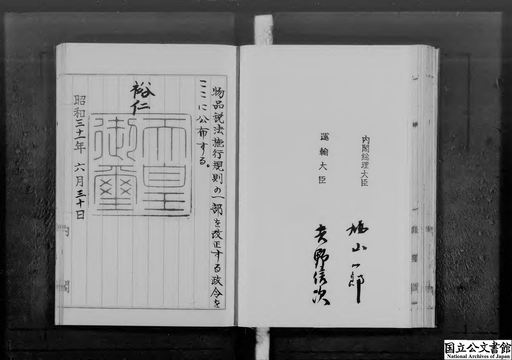 内閣総理大臣
鳩山一郎
運輸大臣
吉野信次
物品税法施行規則の一部を改正する政令を
ここに公布する。
裕仁
天皇
御璽
昭和三十一年六月三十日
内閣
国立公文書館
National Archives of Japan